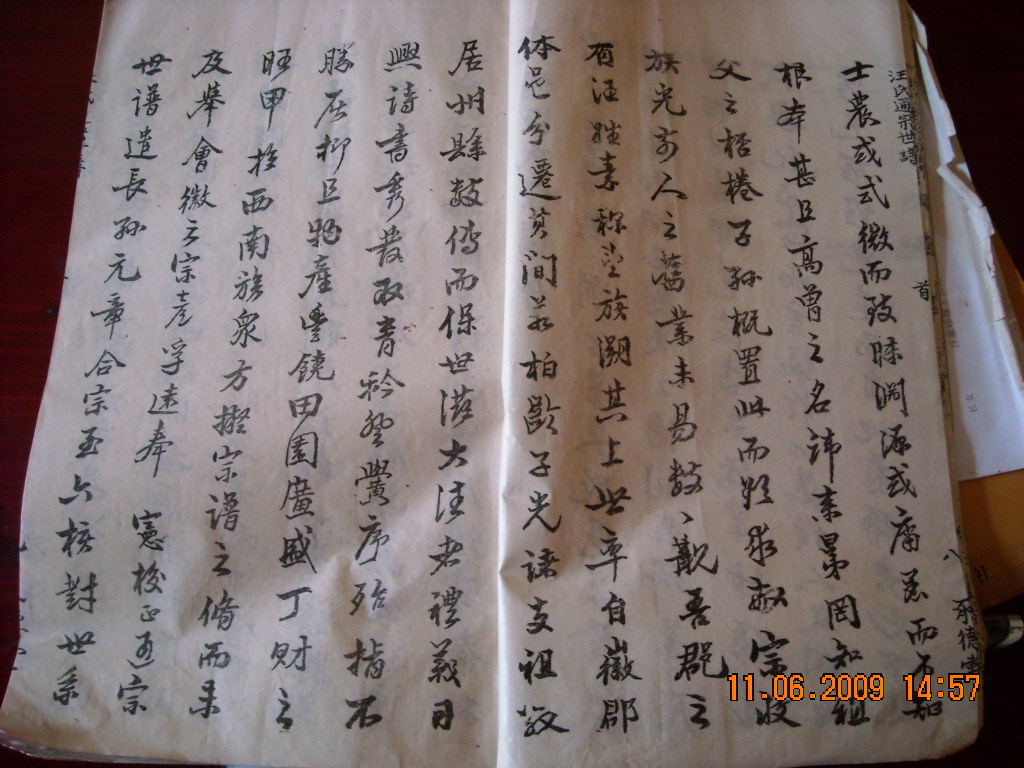 汪氏通宗世譜
首
八
士農或式微而致昧淵源或庸愚而不知
根本甚且高曾之名諱未晰罔知祖
父之桮棬子孫概置此而欲求敬宗收
族光前人之舊業未易數數觀吾郡之
有汪姓素稱望族溯其上世率自徽郡
休邑分遷其間若柏齡子光諸支祖散
居州縣數傳而保世滋大法者禮義日
興詩書秀發取青衿登黌序殆指不
勝屈抑且物產豐饒田園廣盛丁財之
旺甲於西南族眾方擬宗譜之脩而未
及舉會徽之宗彥孚遠奉 憲校正通宗
世譜遣長孫元章合宗至六核對世系
11.06.2009 14:57